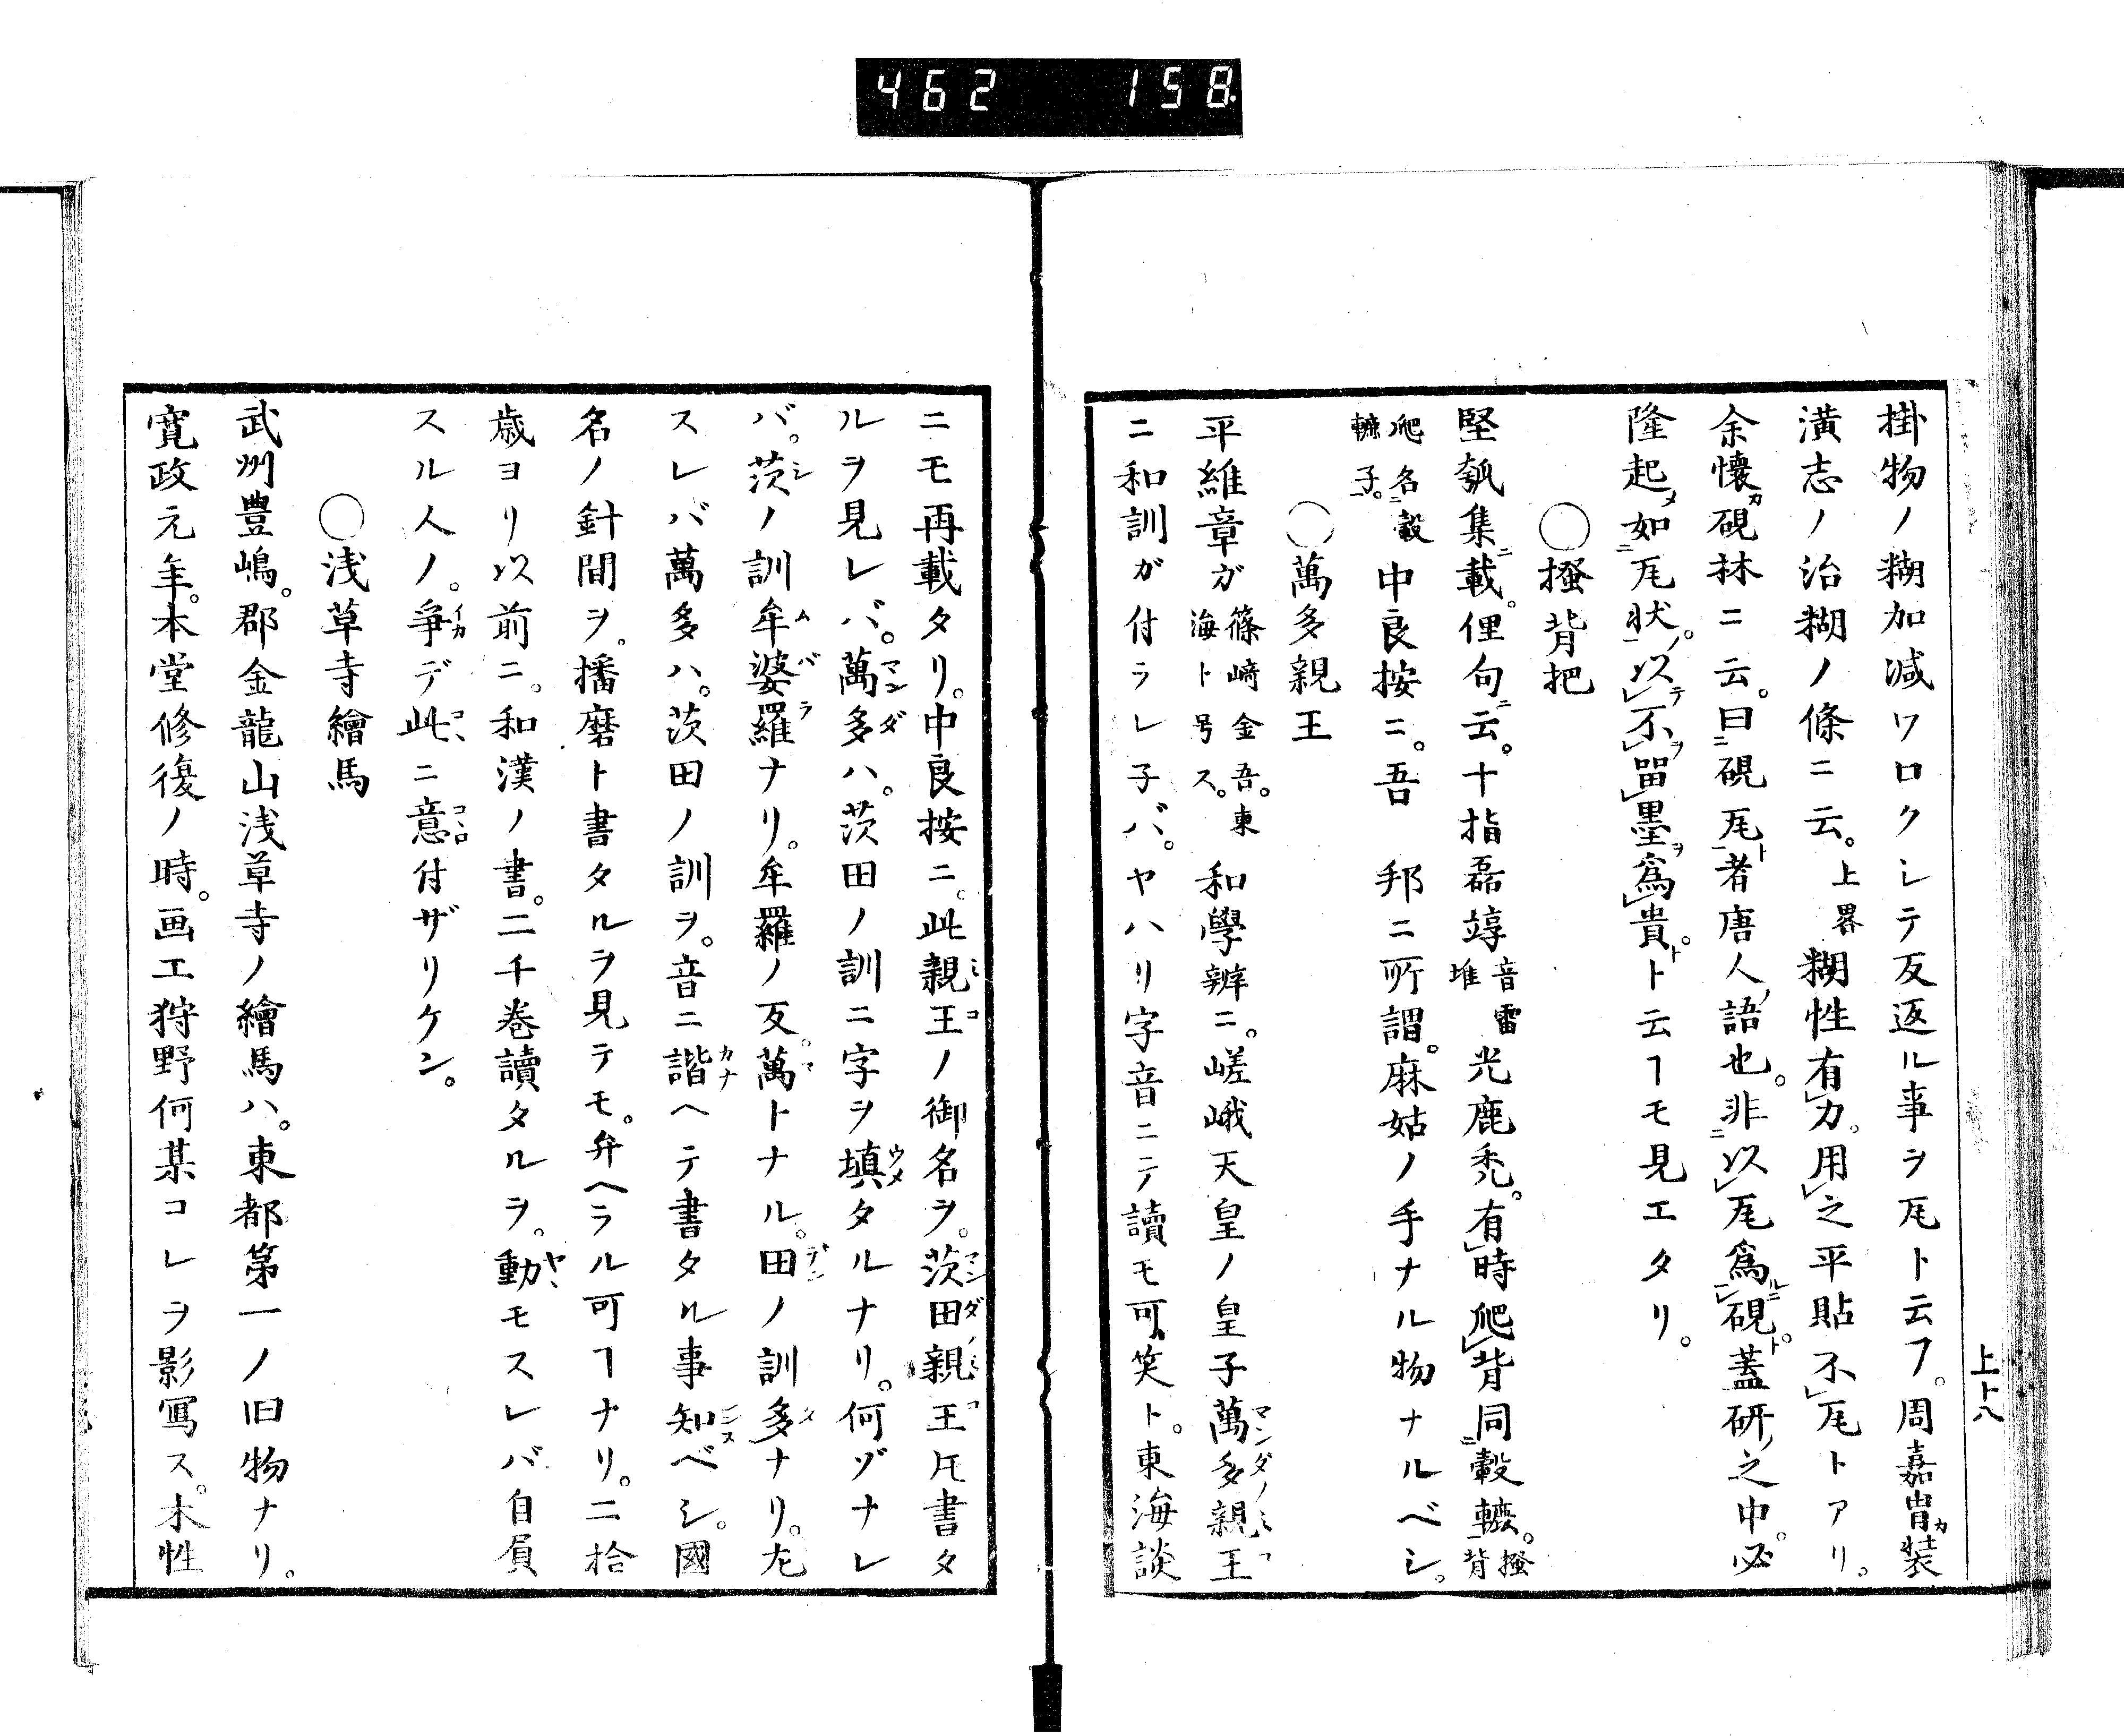 462 158.
上ト八
掛物ノ糊加減ワロクシテ反返ル事ヲ瓦ト云フ。周嘉冑カ装
潢志ノ治糊ノ條ニ云。上畧糊性有レ力。用レ之平貼不レ瓦トアリ。
余懷カ硯林ニ云。曰ニ硯瓦ト一者唐人ノ語也。非ニ以レ瓦爲ルニレ硯ト。蓋研ノ之中。必
隆起メ如ニ瓦状ノ一。以テレ不ヲレ留レ墨ヲ爲レ貴ト。ト云ヿモ見エタリ。
〇搔背把
堅瓠集ニ載。俚句ニ云。十指磊埻音雷堆光鹿禿。有レ時爬レ背同ニ轂轆一。搔背
爬名ニ轂轆子一。中良按ニ。吾邦ニ所謂。麻姑ノ手ナル物ナルベシ。
〇萬多親王
平維章ガ篠﨑金吾。東海ト号ス。和學辨ニ。嵯峨天皇ノ皇子萬多親王マンダノミコ
ニ和訓ガ付ラレ子バ。ヤハリ字音ニテ讀モ可笑ト。東海談
ニモ再載タリ。中良按ニ。此親王ミコノ御名ヲ。茨田親王マンダノミコ𪜈書タ
ルヲ見レバ。萬多マンダハ。茨田ノ訓ニ字ヲ填ウメタルナリ。何ヅナレ
バ。茨シノ訓牟婆羅ムバラナリ。牟羅ノ反。萬マトナル。田デンノ訓多タナリ。尤
スレバ萬多ハ。茨田ノ訓ヲ。音ニ諧カナヘテ書タル事知ンヌベシ。國
名ノ針間ヲ。播磨ト書タルヲ見テモ。弁ヘラル可ヿナリ。二拾
歳ヨリ以前ニ。和漢ノ書。二千巻讀タルヲ。動ヤヽモスレバ自屓
スル人ノ。爭イカデ此コヽニ意コヽロ付ザリケン。
〇浅草寺繪馬
武州豊嶋。郡金龍山浅草寺ノ繪馬ハ。東都第一ノ旧物ナリ。
寛政元年。本堂修復ノ時。画工狩野何某コレヲ影寫ス。木性